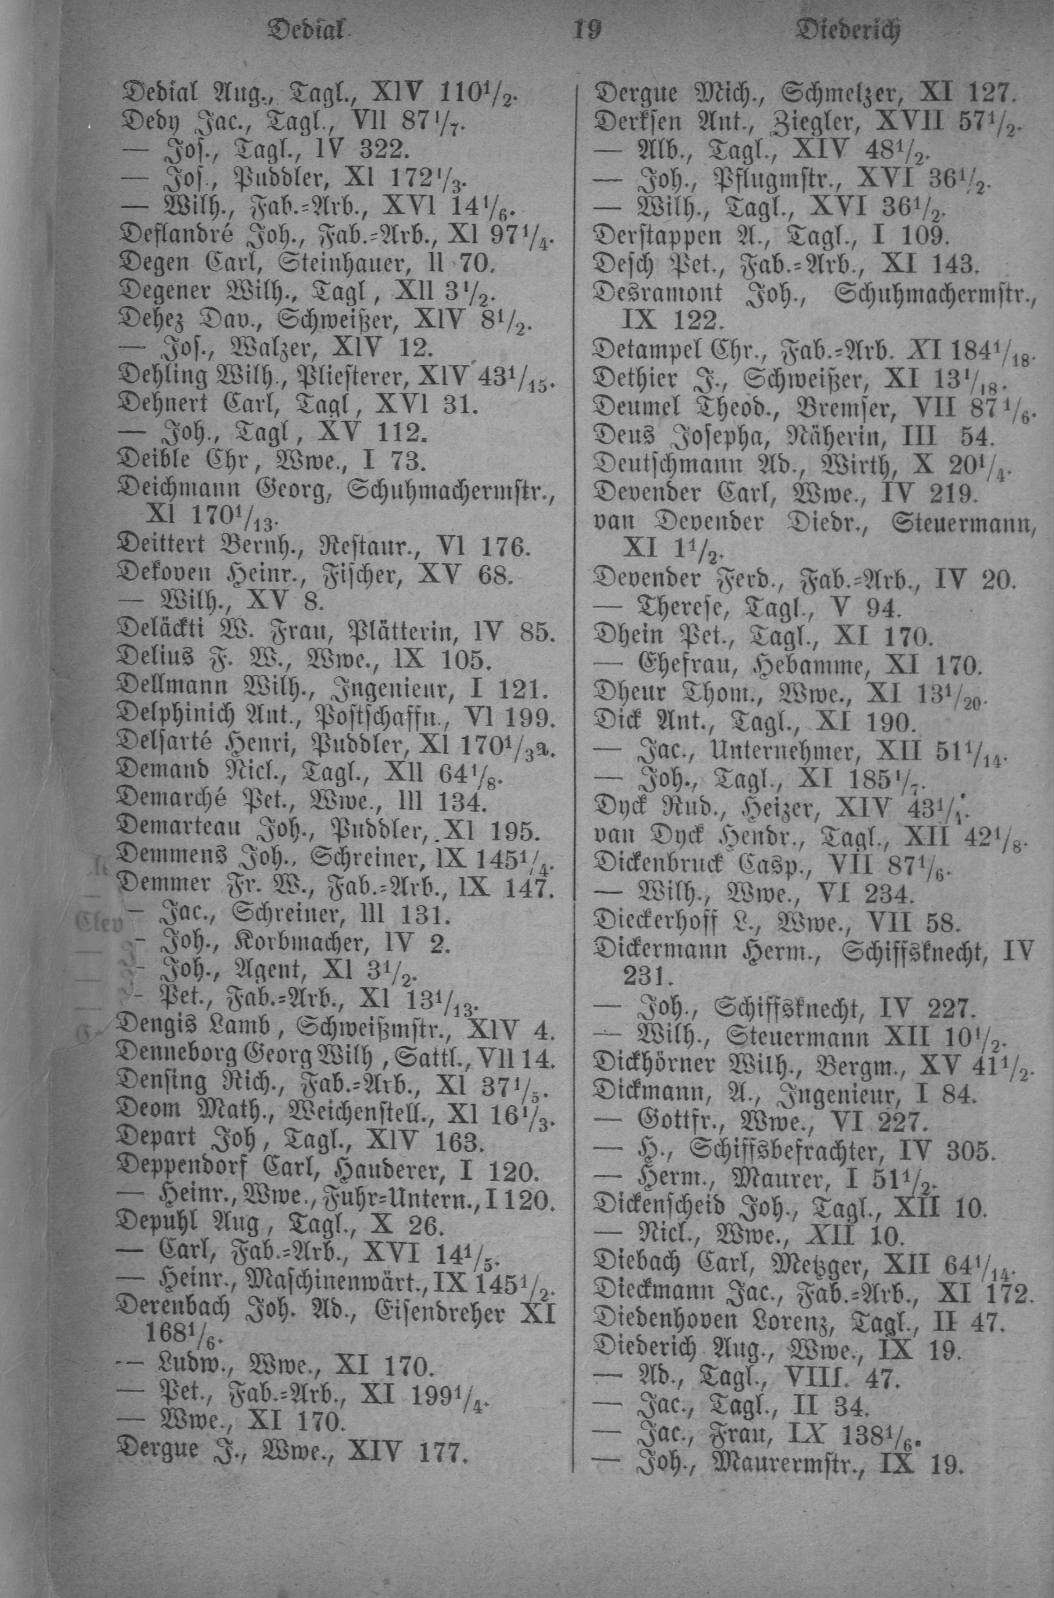 Dedial 19 Diederich
Dedial Aug., Tagl., XIV 110 1/2.
Dedy Jac., Tagl., VII 87 1/7.
— Jos., Tagl., IV 322.
— Jos., Puddler, XI 172 1/3.
— Wilh., Fab.=Arb., XVI 14 1/6.
Deflandré Joh., Fab.=Arb., XI 97 1/4.
Degen Carl, Steinhauer, II 70.
Degener Wilh., Tagl, XII 3 1/2.
Dehez Dav., Schweißer, XIV 8 1/2.
— Jos., Walzer, XIV 12.
Dehling Wilh., Pliesterer, XIV 43 1/15.
Dehnert Carl, Tagl, XVI 31.
— Joh., Tagl, XV 112.
Deible Chr, Wwe., I 73.
Deichmann Georg, Schuhmachermstr.,
XI 170 1/13.
Deittert Bernh., Restaur., VI 176.
Dekoven Heinr., Fischer, XV 68.
— Wilh., XV 8.
Deläckti W. Frau, Plätterin, IV 85.
Delius F. W., Wwe., IX 105.
Dellmann Wilh., Ingenieur, I 121.
Delphinich Ant., Postschaffn., VI 199.
Delsarté Henri, Puddler, XI 170 1/3a.
Demand Nicl., Tagl., XII 64 1/8.
Demarché Pet., Wwe., III 134.
Demarteau Joh., Puddler, XI 195.
Demmens Joh., Schreiner, IX 145 1/4.
Demmer Fr. W., Fab.=Arb., IX 147.
— Jac., Schreiner, III 131.
— Joh., Korbmacher, IV 2.
— Joh., Agent, XI 3 1/2.
— Pet., Fab.=Arb., XI 13 1/13.
Dengis Lamb, Schweißmstr., XIV 4.
Denneborg Georg Wilh, Sattl., VII 14.
Densing Rich., Fab.=Arb., XI 37 1/5.
Deom Math., Weichenstell., XI 16 1/3.
Depart Joh, Tagl., XIV 163.
Deppendorf Carl, Hauderer, I 120.
— Heinr., Wwe., Fuhr=Untern., I 120.
Depuhl Aug, Tagl., X 26.
— Carl, Fab.=Arb., XVI 14 1/5.
— Heinr., Maschinenwärt., IX 145 1/2.
Derenbach Joh. Ad., Eisendreher XI
168 1/6.
— Ludw., Wwe., XI 170.
— Pet., Fab.=Arb., XI 199 1/4.
— Wwe., XI 170.
Dergue J., Wwe., XIV 177.
Dergue Mich., Schmelzer, XI 127.
Derksen Ant., Ziegler, XVII 57 1/2.
— Alb., Tagl., XIV 48 1/2.
— Joh., Pflugmstr., XVI 36 1/2.
— Wilh., Tagl., XVI 36 1/2.
Derstappen A., Tagl., I 109.
Desch Pet., Fab.=Arb., XI 143.
Desramont Joh., Schuhmachermstr.,
IX 122.
Detampel Chr., Fab.=Arb. XI 184 1/18.
Dethier J., Schweißer, XI 13 1/18.
Deumel Theod., Bremser, VII 87 1/6.
Deus Josepha, Näherin, III 54.
Deutschmann Ad., Wirth, X 20 1/4.
Devender Carl, Wwe., IV 219.
van Devender Diedr., Steuermann,
XI 1 1/2.
Devender Ferd., Fab.=Arb., IV 20.
— Therese, Tagl., V 94.
Dhein Pet., Tagl., XI 170.
— Ehefrau, Hebamme, XI 170.
Dheur Thom., Wwe., XI 13 1/20.
Dick Ant., Tagl., XI 190.
— Jac., Unternehmer, XII 51 1/14.
— Joh., Tagl., XI 185 1/7.
Dyck Rud., Heizer, XIV 43 1/4.
van Dyck Hendr., Tagl., XII 42 1/8.
Dickenbruck Casp., VII 87 1/6.
— Wilh., Wwe., VI 234.
Dieckerhoff L., Wwe., VII 58.
Dickermann Herm., Schiffsknecht, IV
231.
— Joh., Schiffsknecht, IV 227.
— Wilh., Steuermann XII 10 1/2.
Dickhörner Wilh., Bergm., XV 41 1/2.
Dickmann, A., Ingenieur, I 84.
— Gottfr., Wwe., VI 227.
— H., Schiffsbefrachter, IV 305.
— Herm., Maurer, I 51 1/2.
Dickenscheid Joh., Tagl., XII 10.
— Nicl., Wwe., XII 10.
Diebach Carl, Metzger, XII 64 1/14.
Dieckmann Jac., Fab.=Arb., XI 172.
Diedenhoven Lorenz, Tagl., II 47.
Diederich Aug., Wwe., IX 19.
— Ad., Tagl., VIII. 47.
— Jac., Tagl., II 34.
— Jac., Frau, IX 138 1/6.
— Joh., Maurermstr., IX 19.